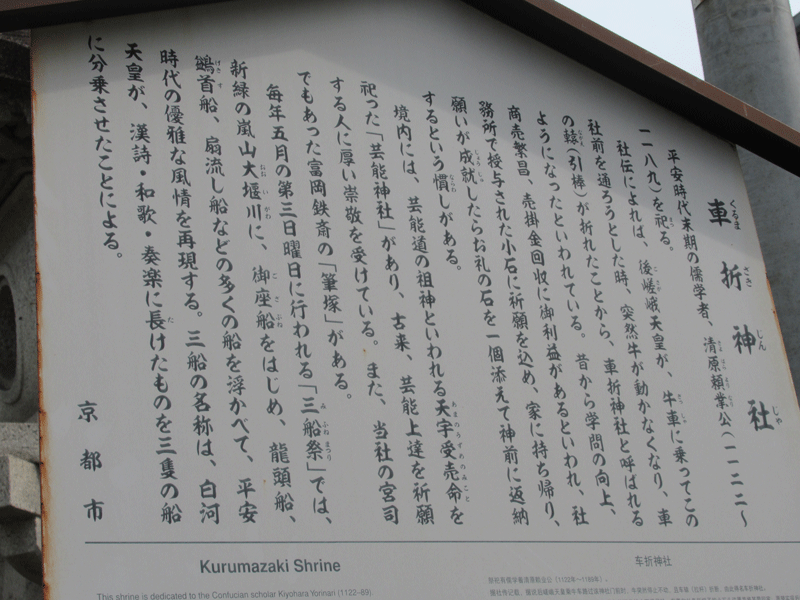 車折神社
平安時代末期の儒学者、清原頼業公(一一二二〜
一一八九)を祀る。
社伝によれば、後嵯峨天皇が、牛車に乗ってこの
社前を通ろうとした時、突然牛が動かなくなり、車
の轅(引棒)が折れたことから、車折神社と呼ばれる
ようになったといわれている。昔から学問の向上、
商売繁昌、売掛金回収に御利益があるといわれ、社
務所で授与された小石に祈願を込め、家に持ち帰り、
願いが成就したらお礼の石を一個添えて神前に返納
するという慣しがある。
境内には、芸能道の祖神といわれる天宇受売命を
祀った「芸能神社」があり、古来、芸能上達を祈願
する人に厚い崇敬を受けている。また、当社の宮司
でもあった富岡鉄斎の「筆塚」がある。
毎年五月の第三日曜日に行われる「三船祭」では、
新緑の嵐山大堰川に、御座船をはじめ、龍頭船、
鷁首船、扇流し船などの多くの船を浮かべて、平安
時代の優雅な風情を再現する。三船の名称は、白河
天皇が、漢詩・和歌・奏楽に長けたものを三隻の船
に分乗させたことによる。
京都市
Kurumazaki Shrine
This shrine is dedicated to the Confucian scholar Kiyohara Yorinari (1122–89).
车折神社